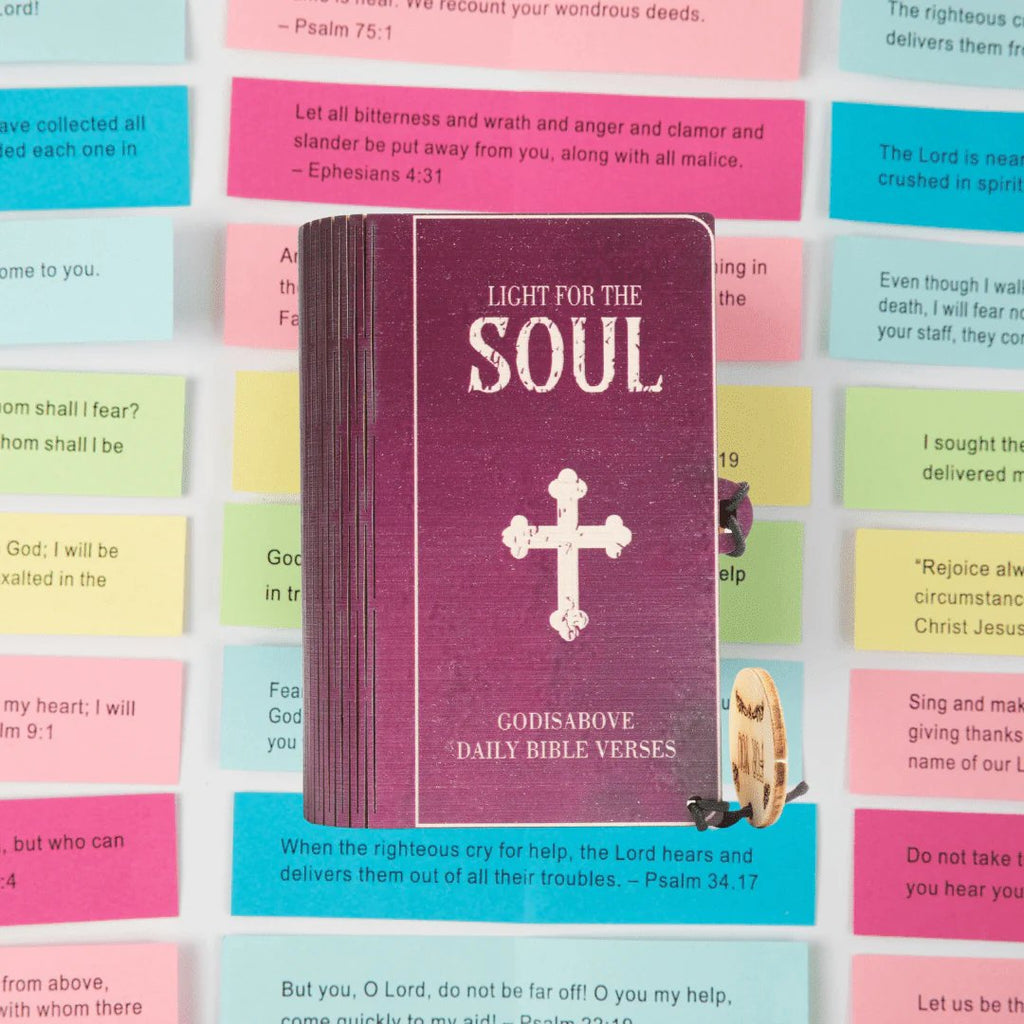 Lord!
is near. We recount your wondrous deeds.
– Psalm 75:1
The righteous
delivers them
ave collected all
each one in
Let all bitterness and wrath and anger and clamor and
slander be put away from you, along with all malice.
– Ephesians 4:31
The Lord is near
crushed in spirit
ome to you.
ing in
the
Even though I walk
death, I will fear
your staff, they
LIGHT FOR THE
SOUL
om shall I fear?
hom shall I be
19
I sought the
delivered
God; I will be
xalted in the
God
in
elp
"Rejoice
Christ Jesus
my heart; I will
lm 9:1
Fea
God
you
Sing and
giving thanks
name of our
GODISABOVE
DAILY BIBLE VERSES
, but who can
:4
When the righteous cry for help, the Lord hears and
delivers them out of all their troubles. – Psalm 34.17
Do not take
you hear
from above,
with whom there
But you, O Lord, do not be far off! O you my help,
come quickly to my aid! – Psalm 22:19
Let us be